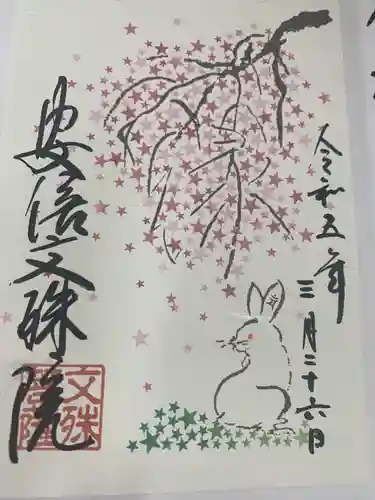 令和五年
三月二十六日
安倍文殊院